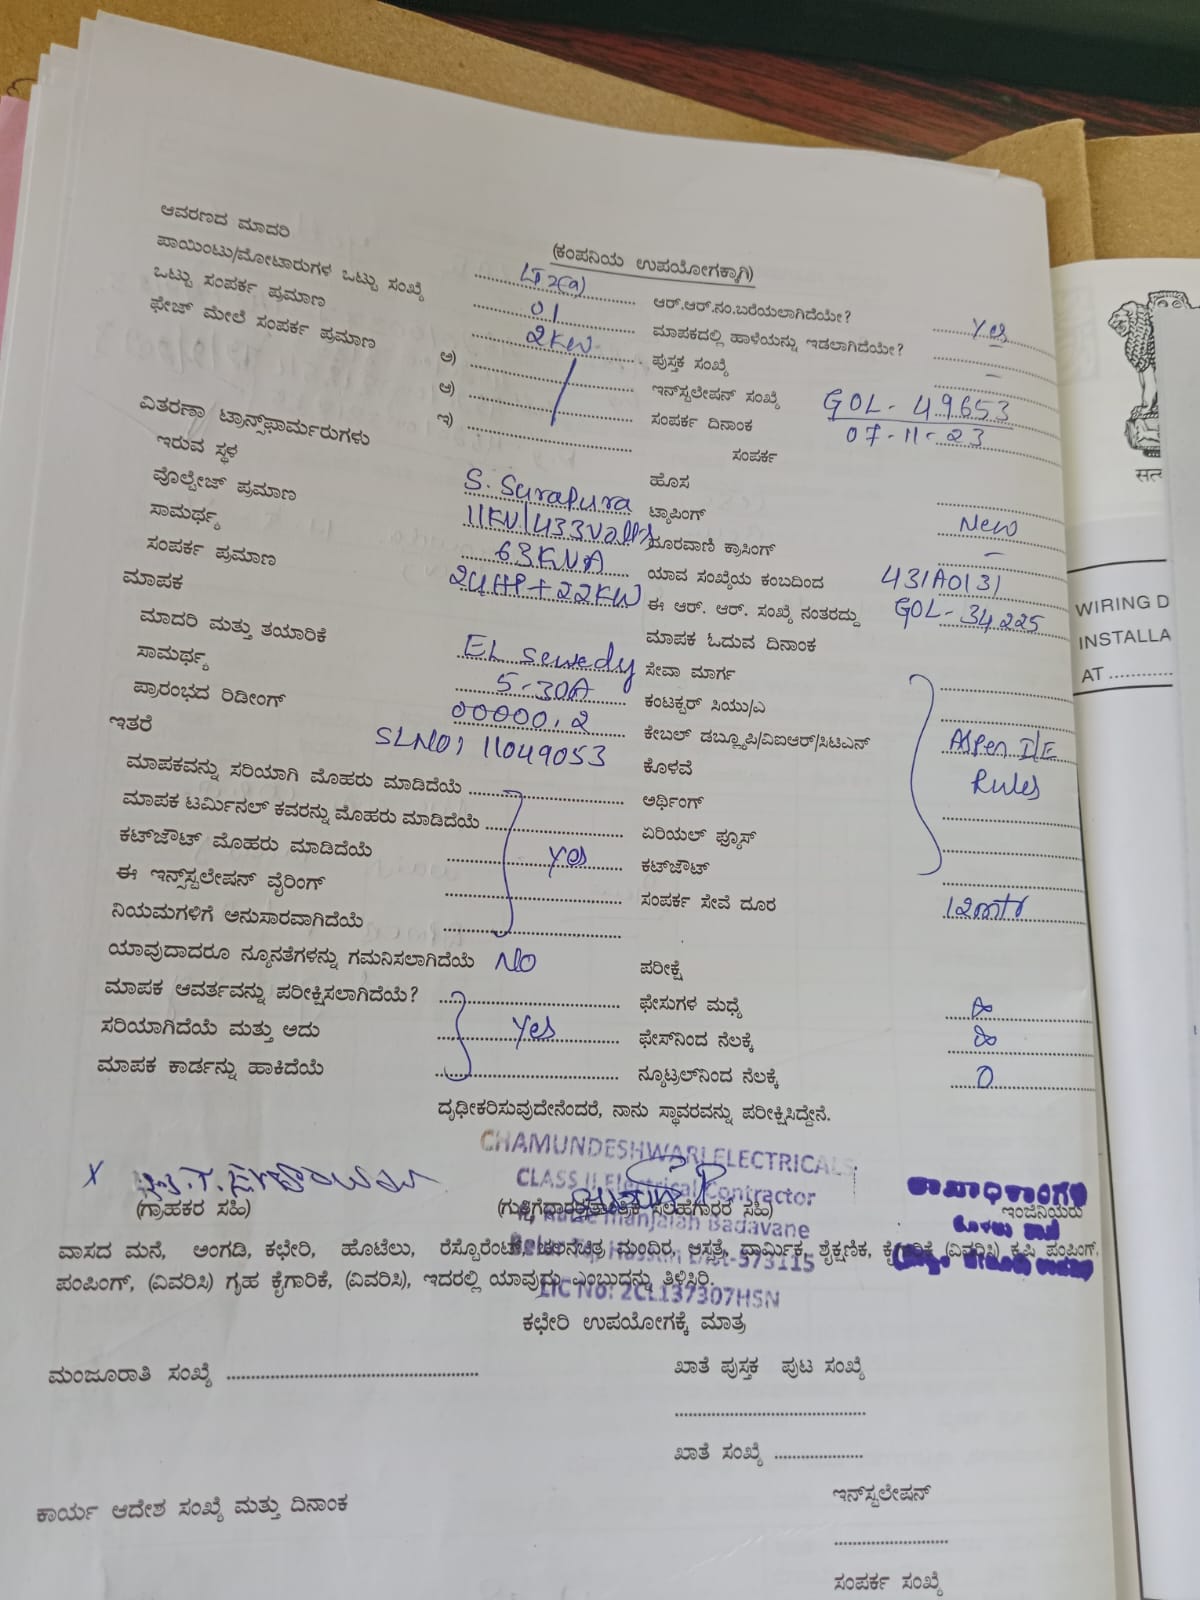 (ಕಂಪನಿಯ ಉಪಯೋಗಕ್ಕಾಗಿ)
ಆವರಣದ ಮಾದರಿ LT 2(a)
ಪಾಯಿಂಟು/ಮೋಟಾರುಗಳ ಒಟ್ಟು ಸಂಖ್ಯೆ 01
ಒಟ್ಟು ಸಂಪರ್ಕ ಪ್ರಮಾಣ 2KW
ಫೇಜ್ ಮೇಲೆ ಸಂಪರ್ಕ ಪ್ರಮಾಣ ಅ)
ಆ)
ಇ)
ವಿತರಣಾ ಟ್ರಾನ್ಸ್‌ಫಾರ್ಮರುಗಳು
ಇರುವ ಸ್ಥಳ S. Surapura
ವೊಲ್ಟೇಜ್ ಪ್ರಮಾಣ 11KV/433Volts
ಸಾಮರ್ಥ್ಯ 63KVA
ಸಂಪರ್ಕ ಪ್ರಮಾಣ 24HP+22KW
ಮಾಪಕ
ಮಾದರಿ ಮತ್ತು ತಯಾರಿಕೆ EL Sewedy
ಸಾಮರ್ಥ್ಯ 5-30A
ಪ್ರಾರಂಭದ ರಿಡೀಂಗ್ 00000.2
ಇತರೆ SLNO: 11049053
ಮಾಪಕವನ್ನು ಸರಿಯಾಗಿ ಮೊಹರು ಮಾಡಿದೆಯೆ
ಮಾಪಕ ಟರ್ಮಿನಲ್ ಕವರನ್ನು ಮೊಹರು ಮಾಡಿದೆಯೆ
ಕಟ್‌ಜೌಟ್ ಮೊಹರು ಮಾಡಿದೆಯೆ Yes
ಈ ಇನ್ಸ್‌ಸ್ಟಲೇಷನ್ ವೈರಿಂಗ್
ನಿಯಮಗಳಿಗೆ ಅನುಸಾರವಾಗಿದೆಯೆ
ಯಾವುದಾದರೂ ನ್ಯೂನತೆಗಳನ್ನು ಗಮನಿಸಲಾಗಿದೆಯೆ NO
ಮಾಪಕ ಆವರ್ತವನ್ನು ಪರೀಕ್ಷಿಸಲಾಗಿದೆಯೆ?
ಸರಿಯಾಗಿದೆಯೆ ಮತ್ತು ಅದು Yes
ಮಾಪಕ ಕಾರ್ಡನ್ನು ಹಾಕಿದೆಯೆ
ಆರ್.ಆರ್.ನಂ.ಬರೆಯಲಾಗಿದೆಯೇ? Yes
ಮಾಪಕದಲ್ಲಿ ಹಾಳೆಯನ್ನು ಇಡಲಾಗಿದೆಯೇ? –
ಪುಸ್ತಕ ಸಂಖ್ಯೆ –
ಇನ್‌ಸ್ಟಲೇಷನ್ ಸಂಖ್ಯೆ GOL-49653
ಸಂಪರ್ಕ ದಿನಾಂಕ 07-11-23
ಸಂಪರ್ಕ
ಹೊಸ
ಟ್ಯಾಪಿಂಗ್ New
ದೂರವಾಣಿ ಕ್ರಾಸಿಂಗ್ –
ಯಾವ ಸಂಖ್ಯೆಯ ಕಂಬದಿಂದ 431A0131
ಈ ಆರ್. ಆರ್. ಸಂಖ್ಯೆ ನಂತರದ್ದು GOL-34225
ಮಾಪಕ ಓದುವ ದಿನಾಂಕ
ಸೇವಾ ಮಾರ್ಗ
ಕಂಟಕ್ಟರ್ ಸಿಯು/ಎ
ಕೇಬಲ್ ಡಬ್ಲ್ಯೂಪಿ/ವಿಐಆರ್/ಸಿಟಿಎಸ್ Asper I/E
ಕೊಳವೆ Rules
ಅರ್ಥಿಂಗ್
ಏರಿಯಲ್ ಫ್ಯೂಸ್
ಕಟ್‌ಜೌಟ್
ಸಂಪರ್ಕ ಸೇವೆ ದೂರ 12mtr
ಪರೀಕ್ಷೆ
ಫೇಸುಗಳ ಮಧ್ಯೆ ∞
ಫೇಸ್‌ನಿಂದ ನೆಲಕ್ಕೆ ∞
ನ್ಯೂಟ್ರಲ್‌ನಿಂದ ನೆಲಕ್ಕೆ 0
ದೃಢೀಕರಿಸುವುದೇನೆಂದರೆ, ನಾನು ಸ್ಥಾವರವನ್ನು ಪರೀಕ್ಷಿಸಿದ್ದೇನೆ.
CHAMUNDESHWARI ELECTRICALS
CLASS II Electrical Contractor
Manjaiah Badavane
573115
LIC No: 2CL137307HSN
X
(ಗ್ರಾಹಕರ ಸಹಿ) (ಗುತ್ತಿಗೆದಾರರ/ತಾಂತ್ರಿಕ ಸಲಹೆಗಾರರ ಸಹಿ) ಇಂಜಿನಿಯರು
ವಾಸದ ಮನೆ, ಅಂಗಡಿ, ಕಛೇರಿ, ಹೊಟೆಲು, ರೆಸ್ಟೊರೆಂಟ್, ಚಲನಚಿತ್ರ ಮಂದಿರ, ಆಸ್ಪತ್ರೆ, ದಾರ್ಮಿಕ, ಶೈಕ್ಷಣಿಕ, ಕೈಗಾರಿಕೆ (ವಿವರಿಸಿ) ಕೃಷಿ ಪಂಪಿಂಗ್,
ಪಂಪಿಂಗ್, (ವಿವರಿಸಿ) ಗೃಹ ಕೈಗಾರಿಕೆ, (ವಿವರಿಸಿ), ಇದರಲ್ಲಿ ಯಾವುದು ಎಂಬುದನ್ನು ತಿಳಿಸಿರಿ.
ಕಛೇರಿ ಉಪಯೋಗಕ್ಕೆ ಮಾತ್ರ
ಮಂಜೂರಾತಿ ಸಂಖ್ಯೆ
ಖಾತೆ ಪುಸ್ತಕ ಪುಟ ಸಂಖ್ಯೆ
ಖಾತೆ ಸಂಖ್ಯೆ
ಕಾರ್ಯ ಆದೇಶ ಸಂಖ್ಯೆ ಮತ್ತು ದಿನಾಂಕ
ಇನ್‌ಸ್ಟಲೇಷನ್
ಸಂಪರ್ಕ ಸಂಖ್ಯೆ
WIRING D
INSTALLA
AT